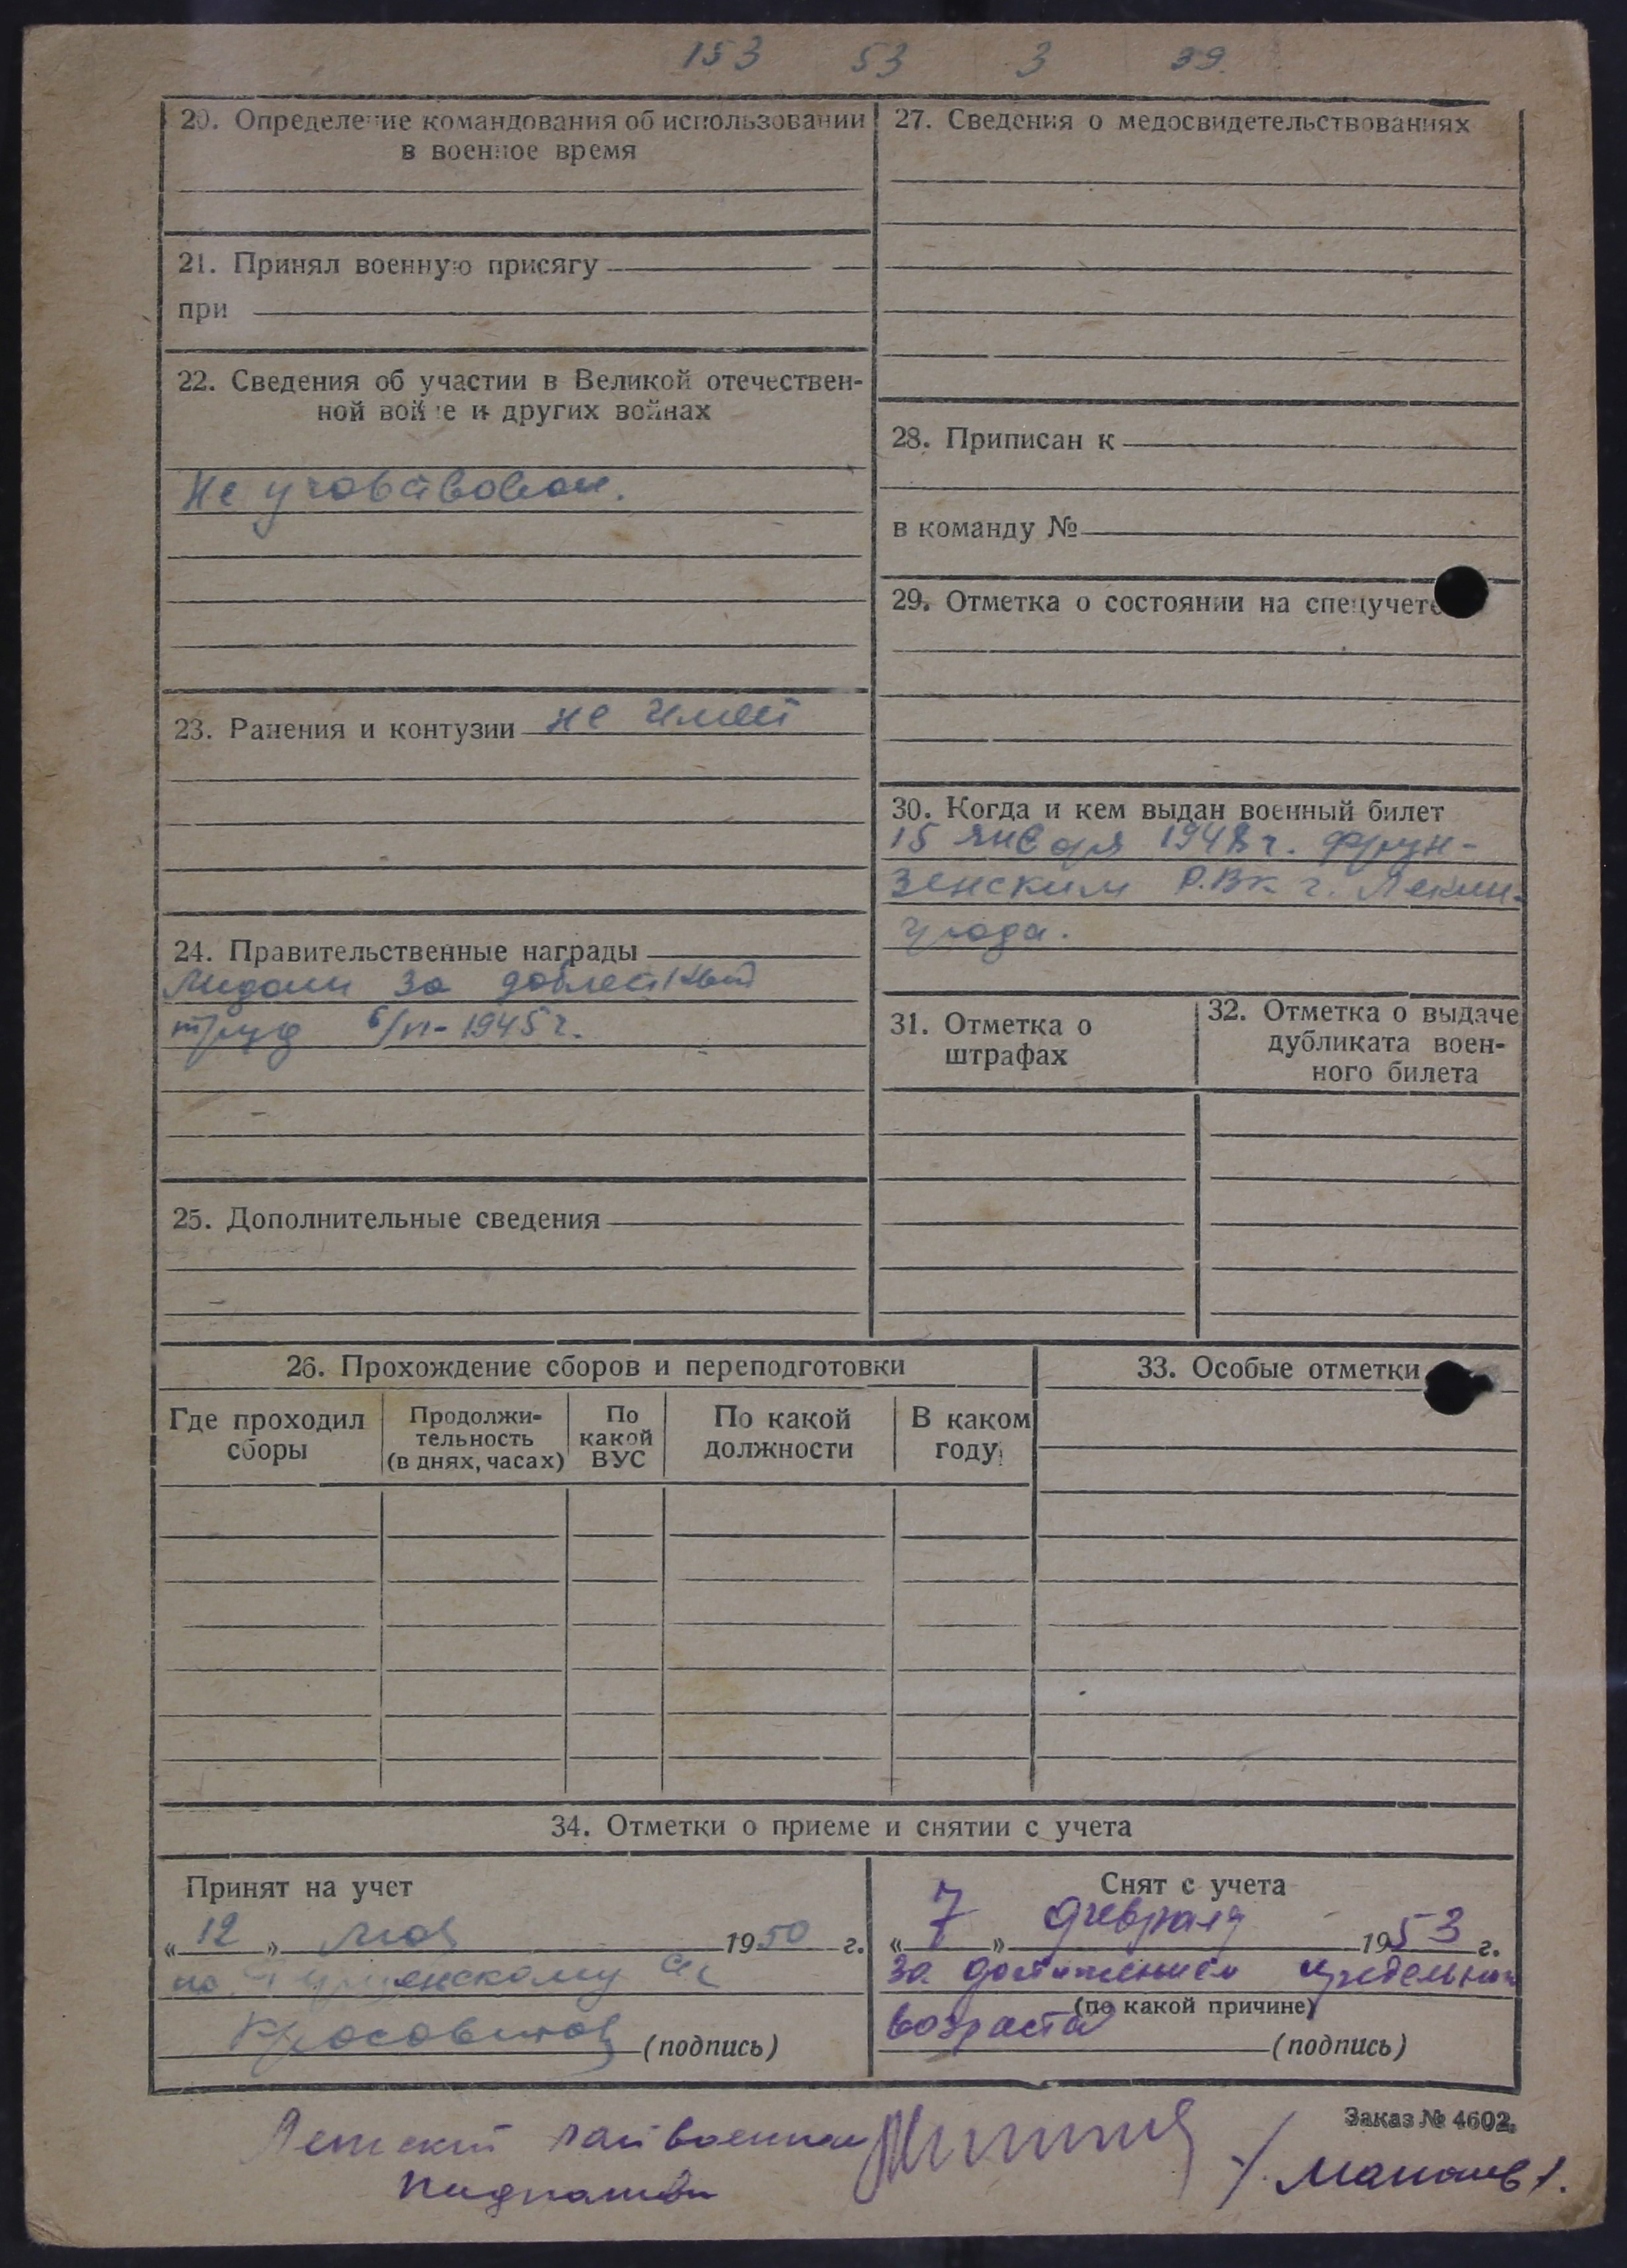 153 53 3 39
20. Определение командования об использовании
в военное время
21. Принял военную присягу
при
22. Сведения об участии в Великой отечествен-
ной войне и других войнах
Не участвовал.
23. Ранения и контузии не имеет
24. Правительственные награды
Медали За доблестный
труд 6/VI-1945 г.
25. Дополнительные сведения
27. Сведения о медосвидетельствованиях
28. Приписан к
в команду №
29. Отметка о состоянии на спецучете
30. Когда и кем выдан военный билет
15 января 1948 г. Фрун-
зенским Р.В.К. г. Ленин-
града.
31. Отметка о
штрафах
32. Отметка о выдаче
дубликата воен-
ного билета
26. Прохождение сборов и переподготовки
Где проходил
сборы
Продолжи-
тельность
(в днях, часах)
По
какой
ВУС
По какой
должности
В каком
году
33. Особые отметки
34. Отметки о приеме и снятии с учета
Принят на учет
« 12 » мая 1950 г.
по
(подпись)
Снят с учета
« 7 » февраля 1953 г.
за достижением предельного
(по какой причине)
возраста
(подпись)
Заказ № 4602.
райвоенком
Подполковник